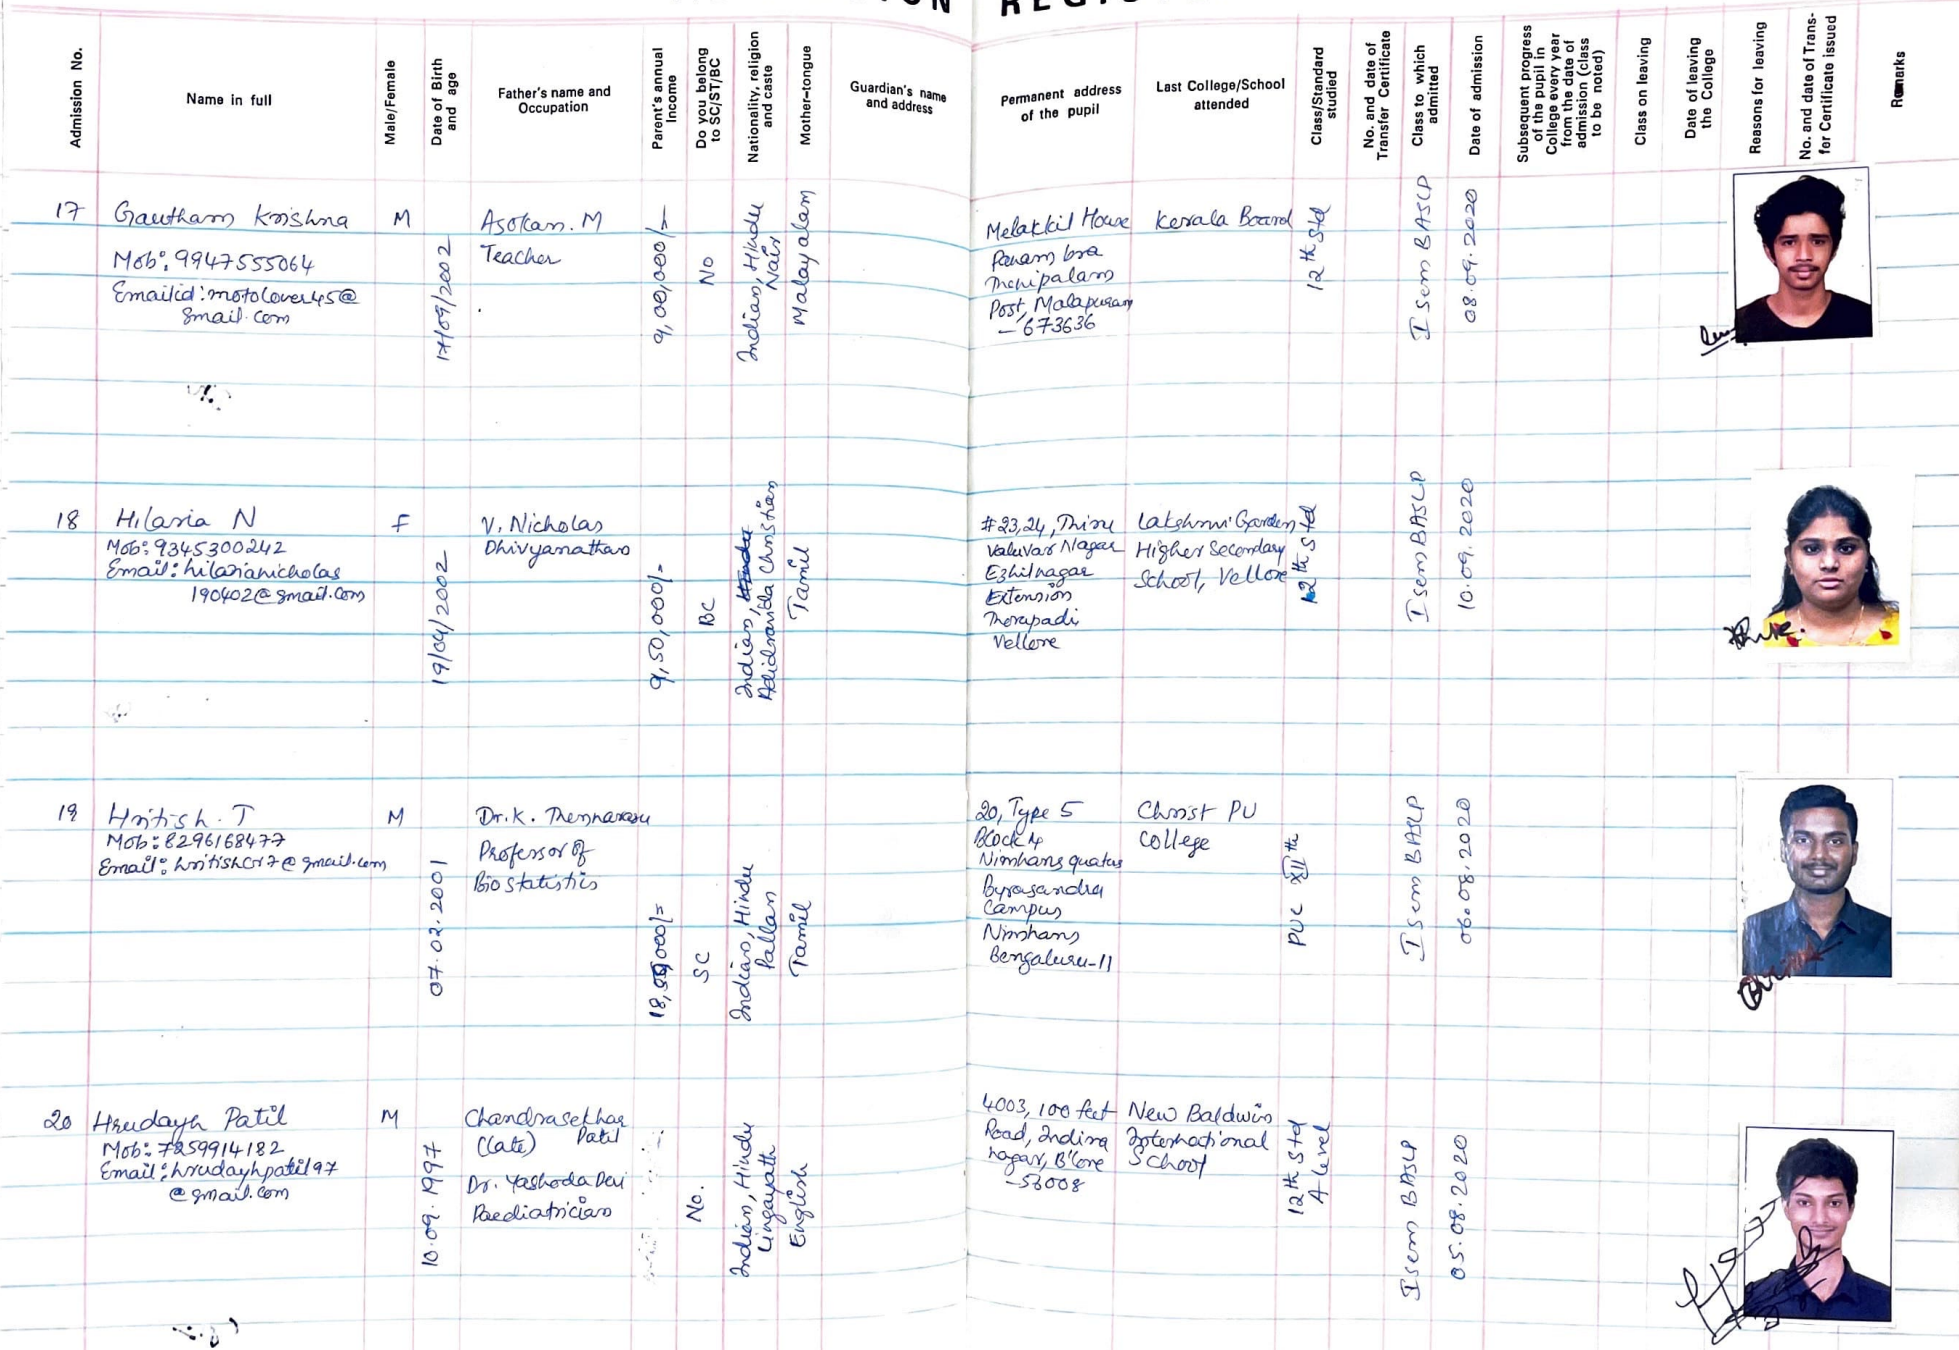 Admission No.
Name in full
Male/Female
Date of Birth
and age
Father's name and
Occupation
Parent's annual
Income
Do you belong
to SC/ST/BC
Nationality, religion
and caste
Mother-tongue
Guardian's name
and address
Permanent address
of the pupil
Last College/School
attended
Class/Standard
studied
No. and date of
Transfer Certificate
Class to which
admitted
Date of admission
Subsequent progress
of the pupil in
College every year
from the date of
admission (class
to be noted)
Class on leaving
Date of leaving
the College
Reasons for leaving
No. and date of Trans-
for Certificate issued
Remarks
17
Gautham Krishna
Mob: 9947555064
Email id: motolover45@
gmail.com
M
17/09/2002
Asokan. M
Teacher
9,00,000/-
No
Indian, Hindu
Nair
Malayalam
Melakkil House
Panambra
Thenipalam
Post, Malapuram
- 673636
Kerala Board
12th Std
I sem BASLP
08.09.2020
18
Hilaria N
Mob: 9345300242
Email: hilarianicholas
190402@gmail.com
F
19/04/2002
V. Nicholas
Dhivyanathan
9,50,000/-
BC
Indian, Hindu
Adidravida Christian
Tamil
#23,24, Thiru
Valuvar Nagar
Ezhilnagar
Extension
Thorapadi
Vellore
Lakshmi Garden
Higher Secondary
School, Vellore
12th Std
I sem BASLP
10.09.2020
19
Hritish. T
Mob: 8296168477
Email: hritishcr7@gmail.com
M
07.02.2001
Dr. K. Thennarasu
Professor of
Bio statistics
SC
Indian, Hindu
Pallan
Tamil
20, Type 5
Block 4
Nimhans quatus
Byrasandra
Campus
Nimhans
Bengaluru-11
Christ PU
College
PUC XIIth
I sem BASLP
06.08.2020
20
Hrudayh Patil
Mob: 7259914182
Email: hrudayhpatil97
@gmail.com
M
10.09.1997
Chandrasekhar
(late) Patil
Dr. Yashoda Devi
Paediatrician
No.
Indian, Hindu
Lingayath
English
4003, 100 feet
Road, Indira
nagar, B'lore
-56008
New Baldwin
International
School
12th Std
A level
I sem BASLP
05.08.2020